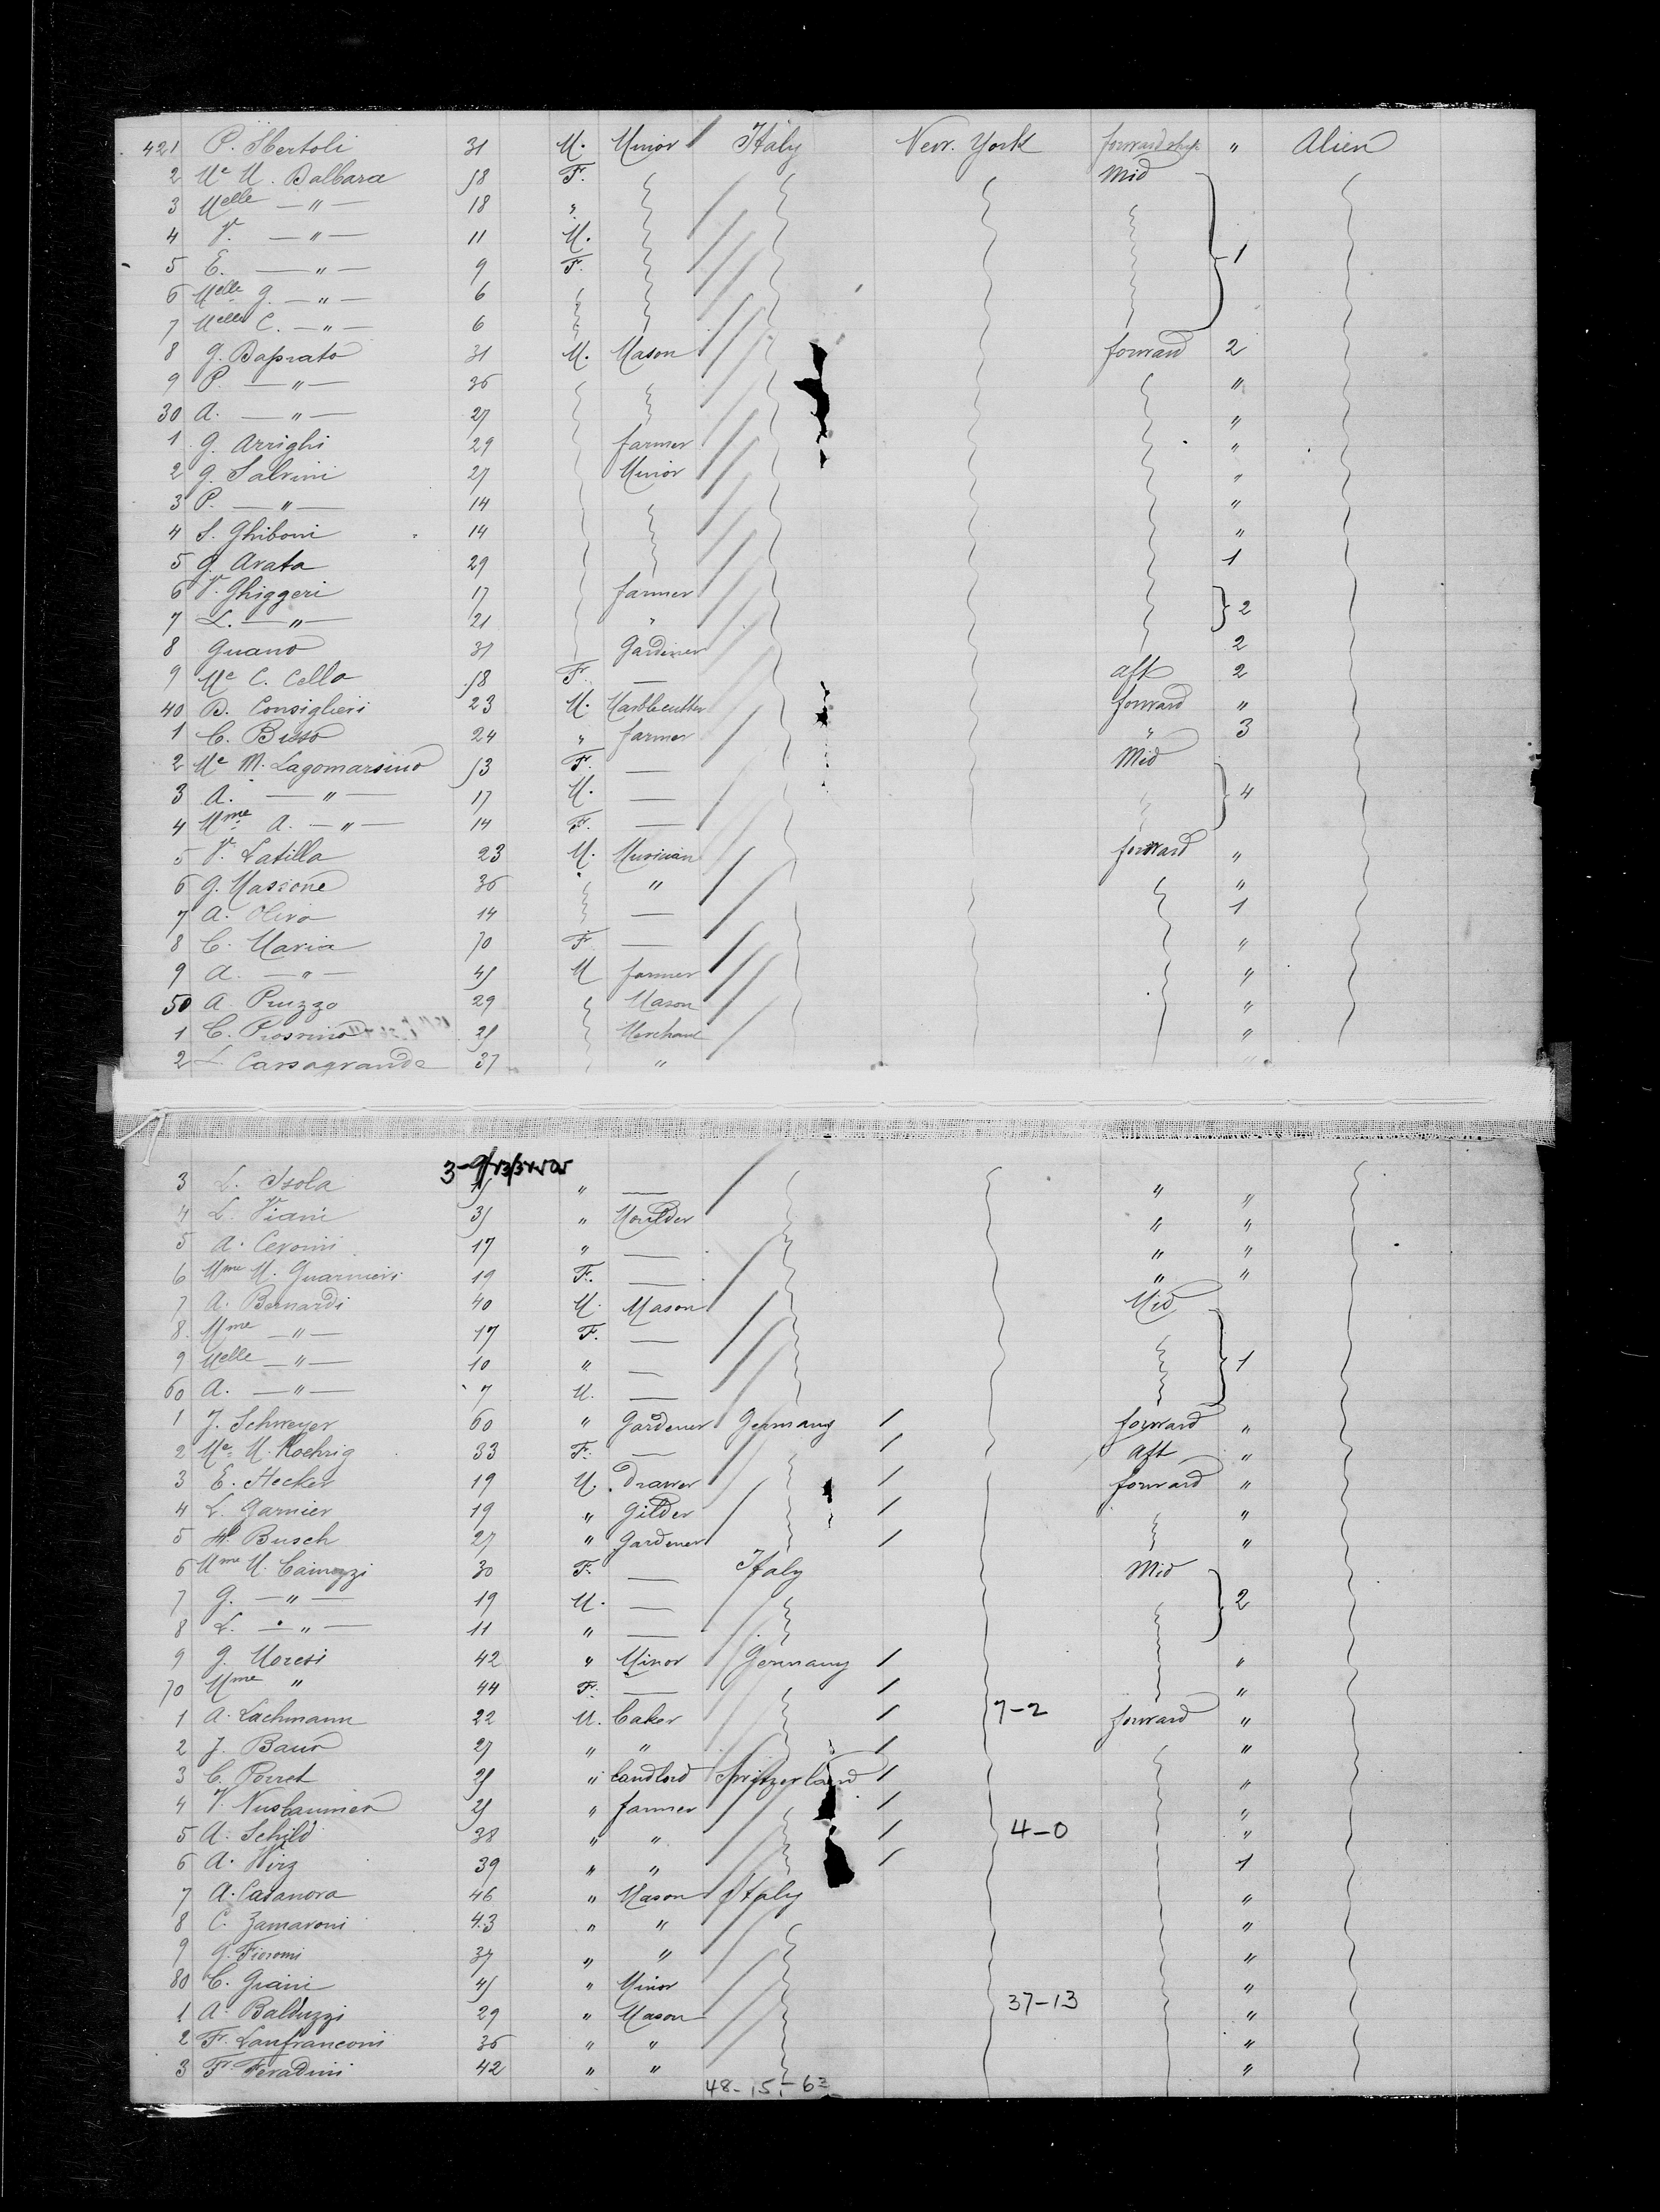 421 P. Bertoli 31 M. Minor Italy New. York forwardship " Alien
2 Me M. Balbara 58 F. Mid
3 Melle — " — 18 "
4 V. — " — 11 M.
5 E. — " — 9 F. 1
6 Melle G. — " — 6
7 Melle C. — " — 6
8 G. Daprato 31 M. Mason forward 2
9 P. — " — 36 "
30 A. — " — 27 "
1 G. Arrighi 29 farmer "
2 G. Salvini 27 Minor "
3 P. — " — 14 "
4 S. Ghiboni 14 "
5 G. Arata 29 1
6 V. Ghiggeri 17 farmer
7 L. — " — 21 " 2
8 Guano 31 Gardener 2
9 Me C. Cella 58 F. — aft 2
40 B. Consiglieri 23 M. Marblecutter forward "
1 C. Bisso 24 " farmer " 3
2 Me M. Lagomarsino 53 F. — Mid
3 A. — " — 17 M. — 4
4 Mme A. — " — 14 F. —
5 V. Latilla 23 M. Musician forward "
6 G. Massone 36 " "
7 A. Oliva 14 — 1
8 C. Maria 70 F — "
9 A. — " — 45 M farmer "
50 A. Piuzzo 29 Mason "
1 C. 25 Merchant "
2 L. Casagrande 37 " "
3 L. Isola 15 " — " "
4 L. Viani 35 " Moulder " "
5 A. Ceroni 17 " — " "
6 Mme M. Guarnieri 19 F. — " "
7 A. Bernardi 40 M. Mason Mid
8 Mme — " — 17 F. —
9 Melle — " — 10 " — 1
60 A. — " — 7 M. —
1 J. Schweyer 60 " Gardener Germany forward "
2 Me M. Koehrig 33 F. — aft "
3 E. Hecker 19 M. Drawer forward "
4 L. Garnier 19 " Gilder "
5 H. Busch 27 " Gardener "
6 Mme M. Cainazzi 30 F. — Italy Mid
7 G. — " — 19 M. — 2
8 L. — " — 11 " —
9 G. Moresi 42 " Minor Germany "
70 Mme " 44 F. — "
1 A. Lachmann 22 M. Baker 7-2 forward "
2 J. Baur 27 " " "
3 C. Porret 25 " Landlord Switzerland "
4 V. Nusbaumer 25 " farmer "
5 A. Schild 38 " " 4-0 "
6 A. Wirz 39 " " 1
7 A. Casanova 46 " Mason Italy "
8 C. Zamaroni 43 " " "
9 G. Fioroni 37 " " "
80 C. Giaini 45 " Minor "
1 A. Balduzzi 29 " Mason 37-13 "
2 F. Lanfranconi 36 " " "
3 F. Feradini 42 " " "
48-15-63